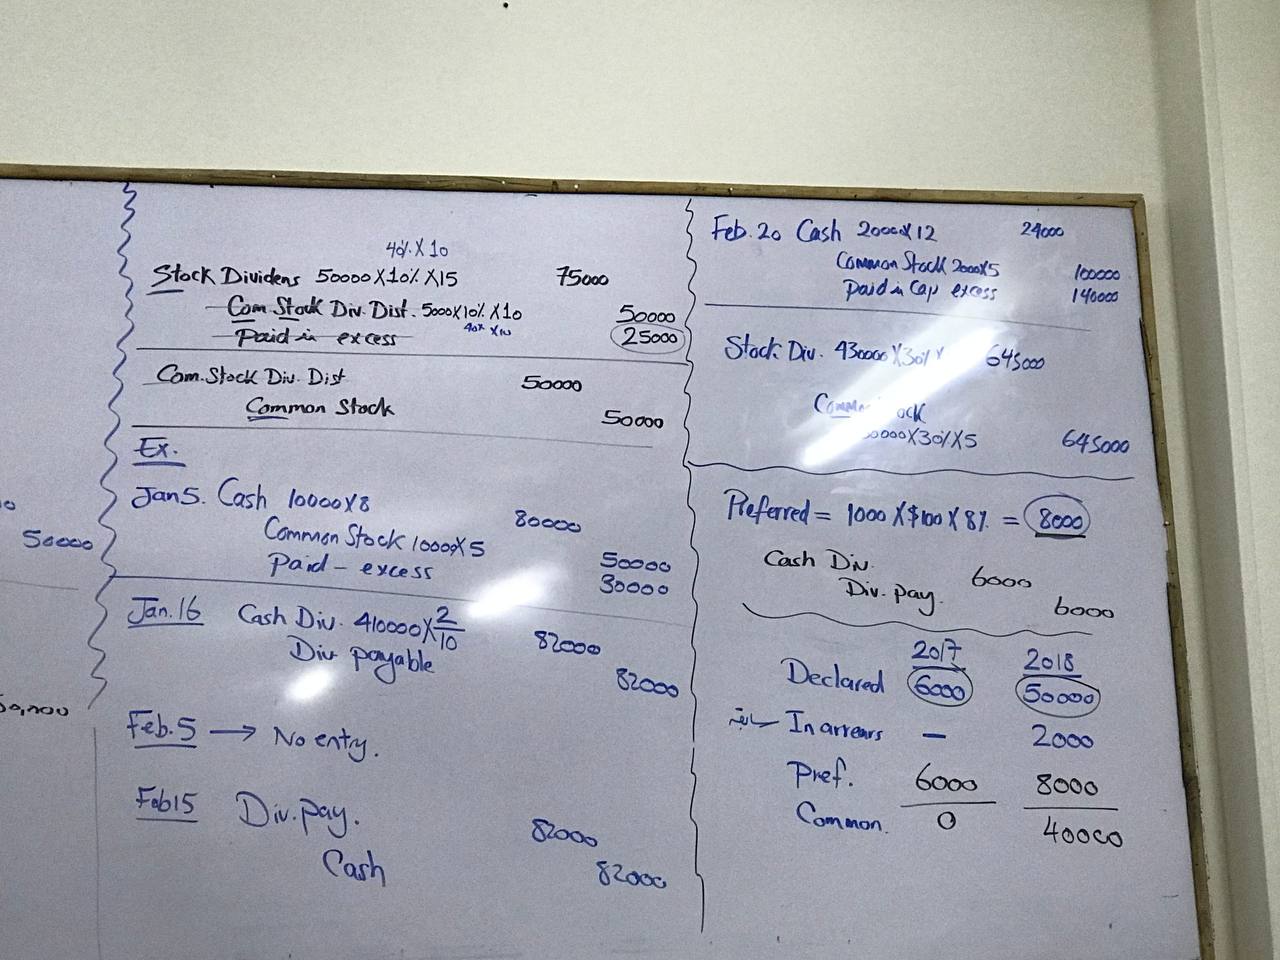 50000
40% X 10
Stock Dividens 50000 X 10% X 15 75000
Com. Stock Div. Dist. 5000X10% X 10 50000
40% X 10
Paid in excess 25000
Com. Stock Div. Dist 50000
Common Stock 50000
Ex.
Jan 5. Cash 10000 X 8 80000
Common Stock 10000X5 50000
Paid - excess 30000
Jan. 16 Cash Div. 410000 X 2/10 82000
Div payable 82000
Feb. 5 → No entry.
Feb 15 Div. pay. 82000
Cash 82000
Feb. 20 Cash 20000X12 24000
Common Stock 20000X5 100000
Paid in Cap excess 140000
Stock Div. 430000 X 30% X 645000
0000 X 30% X 5 645000
Preferred = 1000 X $100 X 8% = 8000
Cash Div. 6000
Div. pay. 6000
2017 2018
Declared 6000 50000
In arrears — 2000
Pref. 6000 8000
Common. 0 40000